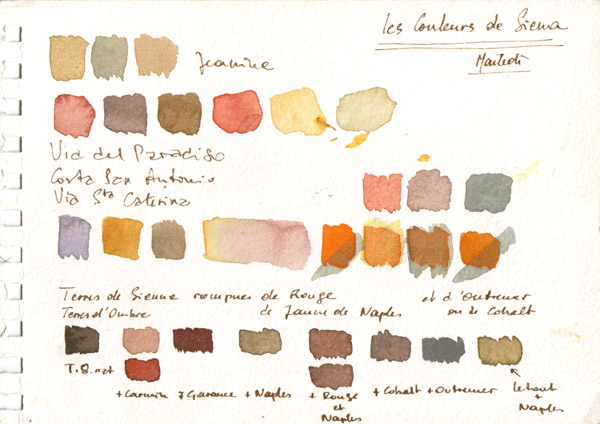 Les Couleurs de Sienna
Martedi
Jeanine
Via del Paradiso
Costa San Antonio
Via Sta Caterina
Terres de Sienne rompues de Rouge et d'Outremer
Terres d'Ombre de Jaune de Naples ou de Cobalt
T.B. nat + Carmin + Garance + Naples + Rouge et Naples + Cobalt + Outremer
+ Naples